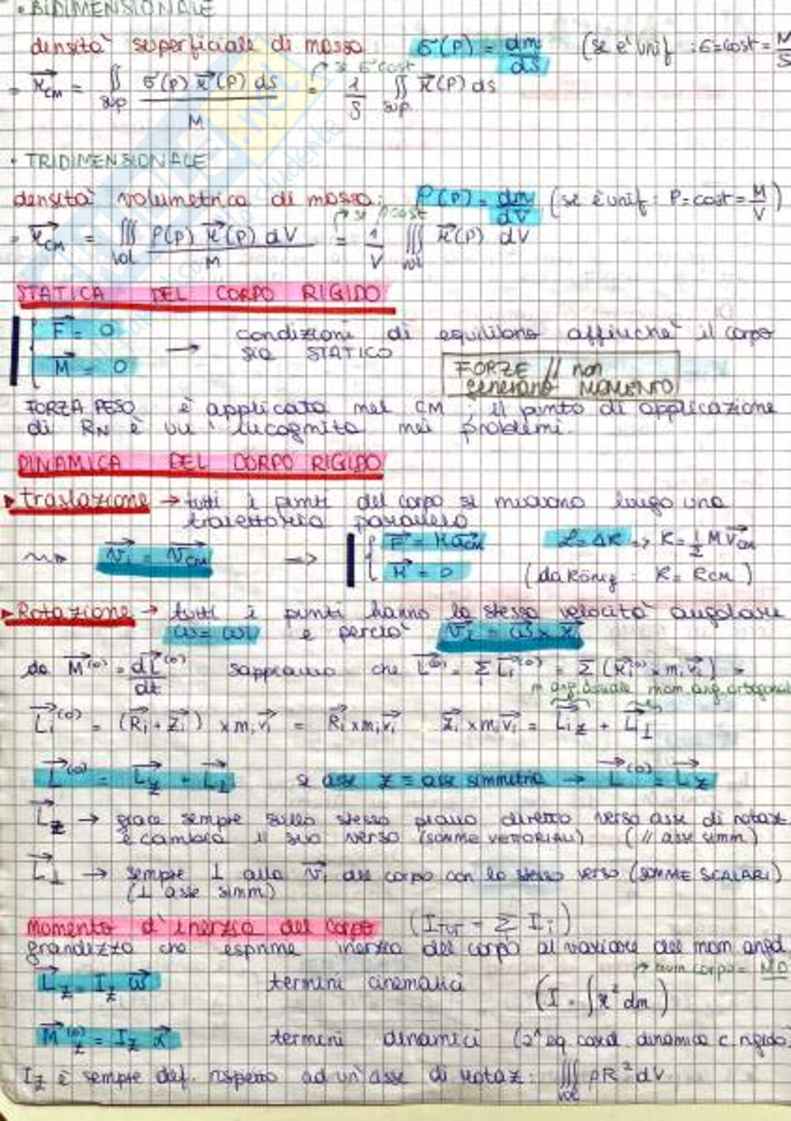 • BIDIMENSIONALE
densità superficiale di massa σ(P) = dm/dS (se è unif : σ=cost = M/S
= r⃗CM = ∬sup σ(P) r⃗(P) dS / M = (se σ cost) 1/S ∬sup r⃗(P) dS
• TRIDIMENSIONALE
densità volumetrica di massa: ρ(P) = dm/dV (se è unif : ρ=cost = M/V)
= r⃗CM = ∭vol ρ(P) r⃗(P) dV / M = (se ρ cost) 1/V ∭vol r⃗(P) dV
STATICA DEL CORPO RIGIDO
F⃗ = 0
M⃗ = 0
→ condizioni di equilibrio affinché il corpo
sia STATICO
FORZE // non
generano MOMENTO
FORZA PESO è applicata nel CM ; il punto di applicazione
di RN è un' incognita nei problemi.
DINAMICA DEL CORPO RIGIDO
▸ traslazione → tutti i punti del corpo si muovono lungo una
traiettoria parallela
v⃗i = v⃗CM ⇒ F⃗ = M a⃗CM L = ΔK → K = 1/2 M v⃗CM
M⃗ = 0 (da König : K = KCM)
▸ Rotazione → tutti i punti hanno la stessa velocità angolare
ω = ωi e perciò v⃗i = ω⃗ × r⃗i
da M⃗(o) = dL⃗(o)/dt sappiamo che L⃗(o) = Σ L⃗i(o) = Σ (r⃗i(o) × mi v⃗i) =
m ang. assiale mom. ang. ortogonale
L⃗i(o) = (R⃗i + z⃗i) × mi v⃗i = R⃗i × mi v⃗i z⃗i × mi v⃗i = L⃗iz + L⃗i⊥
L⃗(o) = L⃗z + L⃗⊥ se asse z = asse simmetria → L⃗(o) = L⃗z
L⃗z → giace sempre sullo stesso piano diretto verso asse di rotaz.
e cambia il suo verso (SOMME VETTORIALI) (// asse simm)
L⃗⊥ → sempre ⊥ alla v⃗i del corpo con lo stesso verso (SOMME SCALARI)
(⊥ asse simm)
Momento d'inerzia del corpo (ITOT = Σ Ii)
grandezza che esprime inerzia del corpo al variare del mom angol
L⃗z = Iz ω⃗ termini cinematici (I = ∫ r² dm)
M⃗z(o) = Iz α⃗ termini dinamici (2ª eq card. dinamica c rigido)
Iz è sempre def. rispetto ad un'asse di rotaz: ∭vol ρR² dV